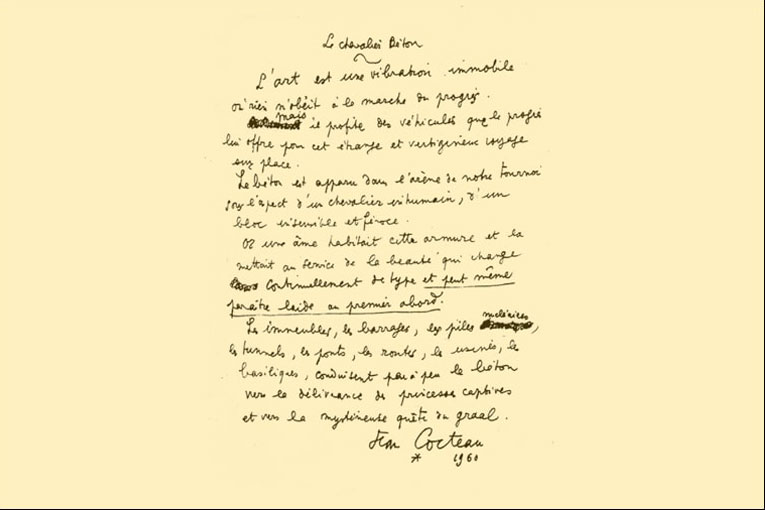 Le chevalier Béton
L'art est une vibration immobile
où rien n'obéit à la marche du progrès.
mais
il profite des véhicules que le progrès
lui offre pour cet étrange et vertigineux voyage
sur place.
Le béton est apparu dans l'arène de notre tournoi
sous l'aspect d'un chevalier inhumain, d'un
bloc insensible et féroce.
Or une âme habitait cette armure et la
mettait au service de la beauté qui change
continuellement de type et peut même
paraître laide au premier abord.
nucléaires
Les immeubles, les barrages, les piles ,
les tunnels, les ponts, les routes, les usines, les
basiliques, conduisent peu à peu le béton
vers la délivrance de princesses captives
et vers la mystérieuse quête du graal.
Jean Cocteau
* 1960